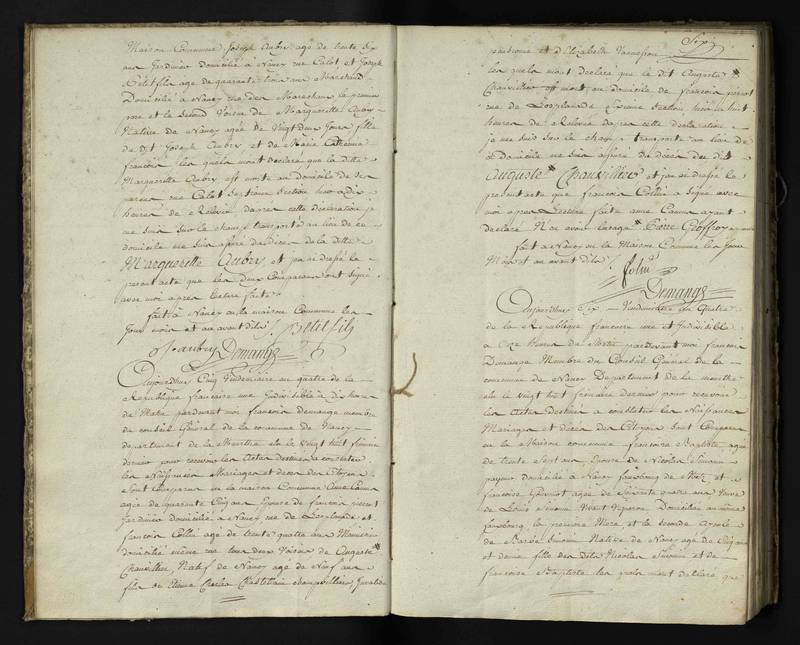 Maison Commune Joseph Aubry age de trente six
ans Jardinier domicilié a Nancy rue Calot et Joseph
Petitfils age de quarante trois ans Marechand
Domicilié a Nancy rue des Marechaux le premier
pere et le Second Voisin de Marguerette Aubry
Native de Nancy agée de Vingt deux Jours fille
de dit Joseph Aubry et de Marie Catherine
françois les quels m'ont declaré que la ditte
Marguerette Aubry est morte au domicile de ses
parens rue Calot Section hier a Dix
heures de Relevée daprès cette déclaration je
me suis sur le champ transporté au lieu de ce
domicile me suis assuré du Décès de la ditte
Marguerette Aubry et j'ai dressé le
present acte que les deux Comparans ont signé
avec moi apres lecture faite
fait a Nancy en la maison Commune les
Jour mois et an avant dits J. petitfils
J. aubry Demange
Aujourdhui Cinq Vendemiaire an quatre de la
Republique francaise une Indivisible a dix heures
de Matin pardevant moi françois demange membre
du conseil Général de la commune de Nancy
departement de la Meurthe elu le vingt huit frimaire
dernier pour recevoir les Actes destinés a constater
les Naissances Mariages et deces des Citoyens
Sont comparus en la maison Commune Anne Cann
agée de quarante Cinq ans Epouse de francois pierrot
Jardinier domiciliée a Nancy rue de Lesplanade et
françois Collin age de trente quatre ans Manœuvre
domicilié meme rue tous deux Voisins de Auguste
Chauvillier, Natif de Nancy age de Neuf ans
fils de Etienne Charles Chastellain chauvilliers, Invalide
Six
pensionné et d'Elizabeth
les quels m'ont declaré que le dit Auguste
Chauvillier est mort au domicile de francois pierrot
rue de Lesplanade Section hier a huit
heures de Relevée daprès cette declaration
je me suis sur le champ transporté au lieu de
ce Domicile me suis assuré du décès du dit
Auguste Chauvillier et j'ai dressé le
present acte que françois Collin a signé avec
moi apres Lecture faite anne Cann ayant
declaré N'en avoir l'usage Pierre Geoffroy
fait a Nancy en la Maison Commune les Jour
Mois et an avant dits
Collin
Demange
Aujourdhui Six Vendemiaire an Quatre
de la Republique francaise une et Indivisible
a Onze heures du Matin pardevant moi françois
Demange Membre du Conseil Général de la
commune de Nancy Departement de la meurthe
elu le vingt huit frimaire dernier pour recevoir
les Actes Destinés a constater les Naissances
Mariages et décès des Citoyens Sont Comparus
en la Maison commune francoise Baptiste agée
de trente sept ans, Epouse de Nicolas Simonin
domicilié a Nancy fauxbourg de Metz et
francoise agée de Soixante quatre ans Veuve
de Louis Vivant Vigneron Domiciliée au même
fauxbourg la premiere Mere et la seconde Ayeule
de Barbe Simonin Native de Nancy age de Cinq ans
et demie fille des dits Nicolas Simonin et de
francoise Baptiste les quels m'ont declaré que